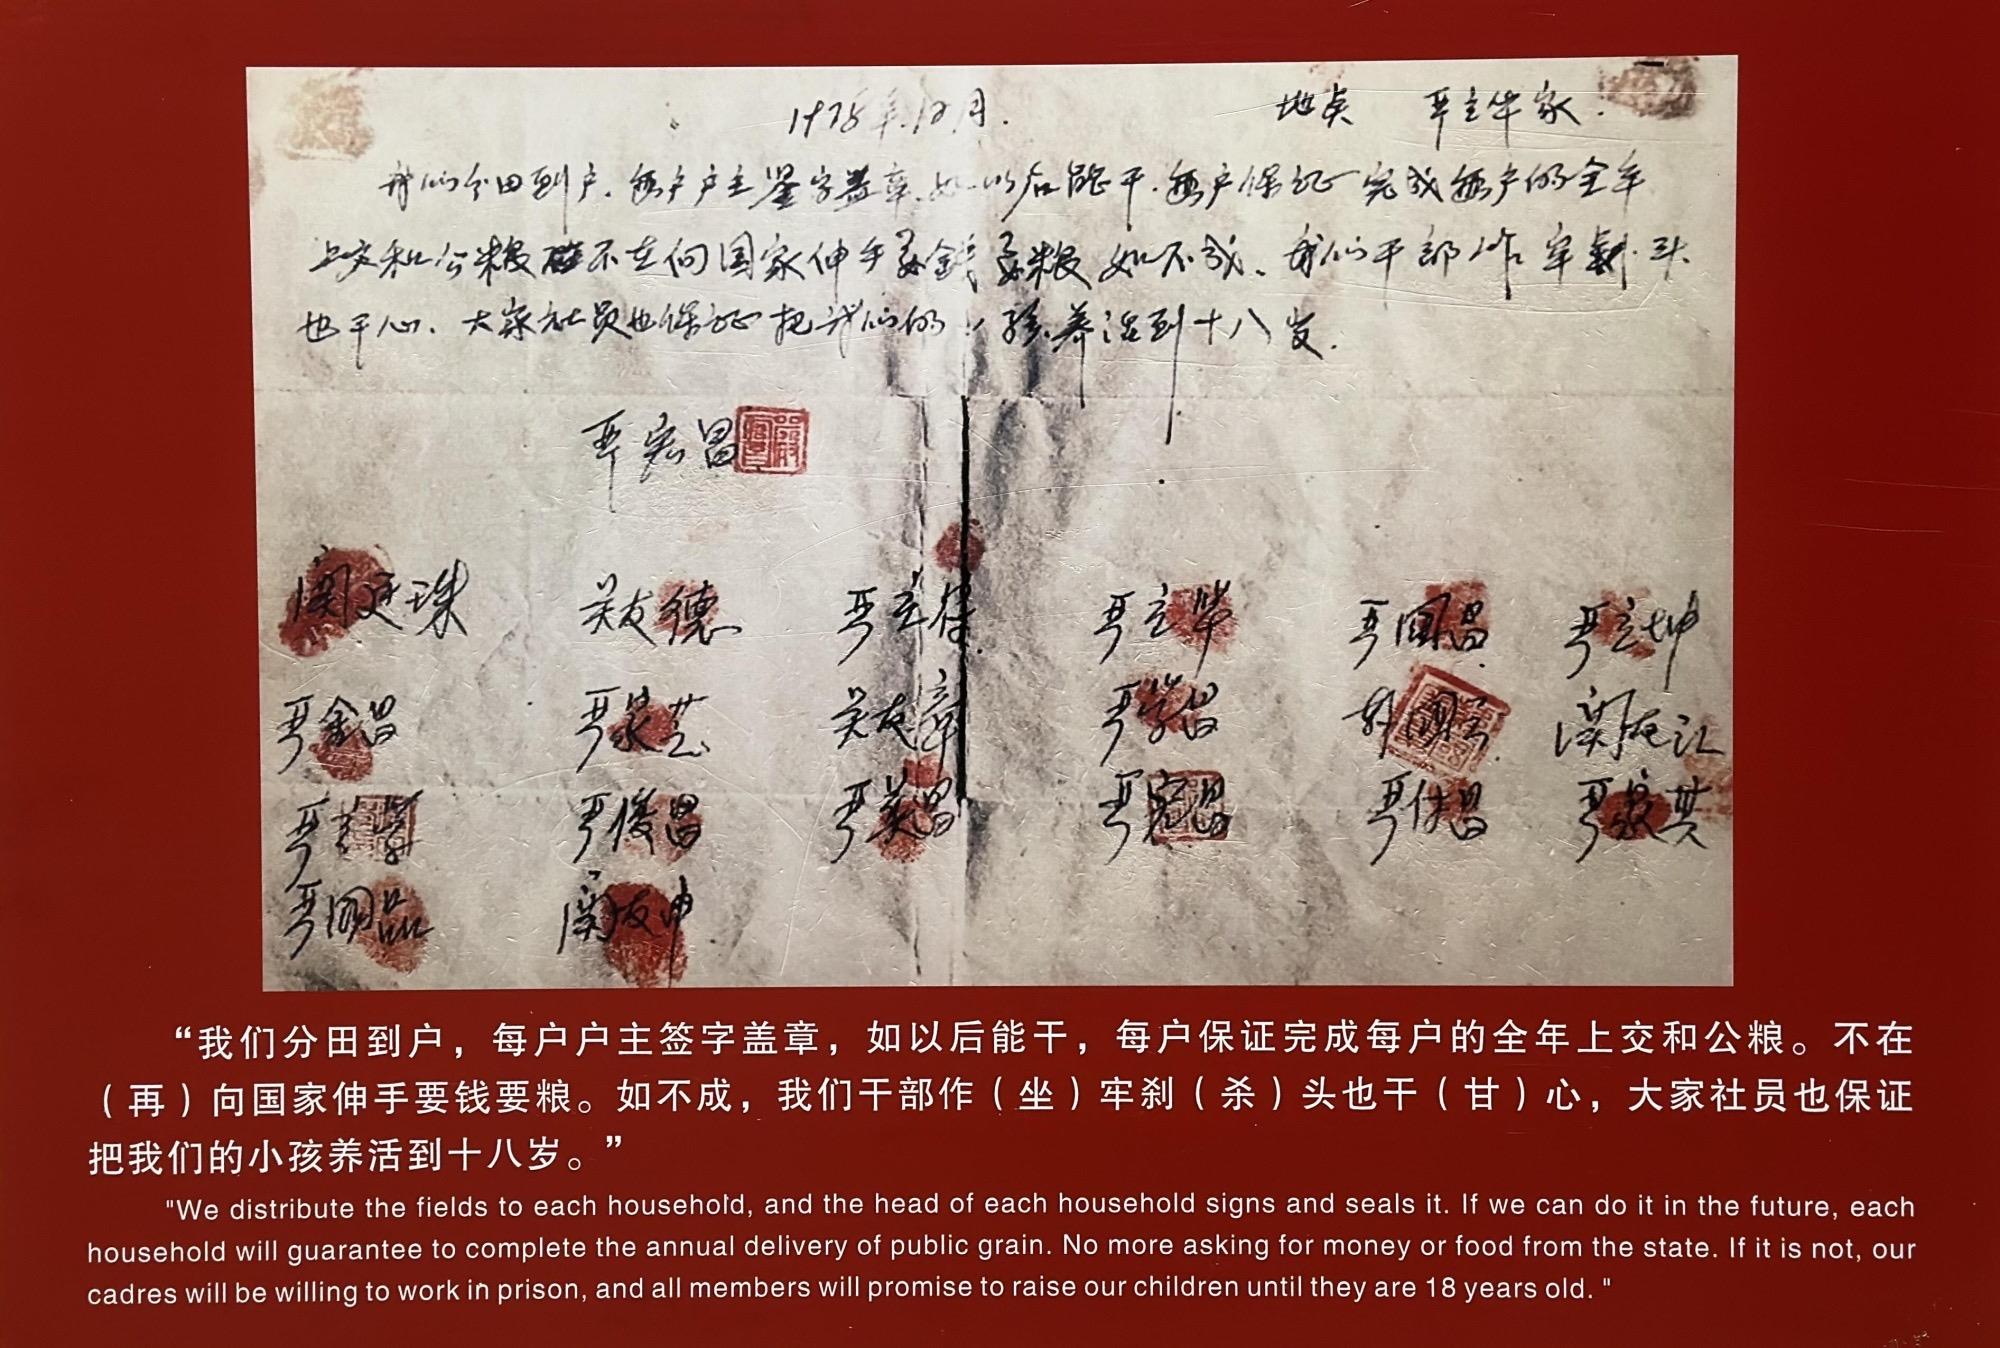 1978年.12月.
地点 严立华家.
我们分田到户.每户户主签字盖章.如以后能干.每户保证完成每户的全年
上交和公粮 不在向国家伸手要钱要粮如不成.我们干部作牢刹头
也干心.大家社员也保证把我们的小孩养活到十八岁.
严宏昌
关廷珠 关友德 严立符 严立华 严国昌 严立坤
严金昌 严家芝 关友章 严学昌 韩国云 关友江
严立学 严俊昌 严美昌 严宏昌 严付昌 严家其
严国品 关友申
“我们分田到户，每户户主签字盖章，如以后能干，每户保证完成每户的全年上交和公粮。不在
（再）向国家伸手要钱要粮。如不成，我们干部作（坐）牢刹（杀）头也干（甘）心，大家社员也保证
把我们的小孩养活到十八岁。”
"We distribute the fields to each household, and the head of each household signs and seals it. If we can do it in the future, each
household will guarantee to complete the annual delivery of public grain. No more asking for money or food from the state. If it is not, our
cadres will be willing to work in prison, and all members will promise to raise our children until they are 18 years old. "